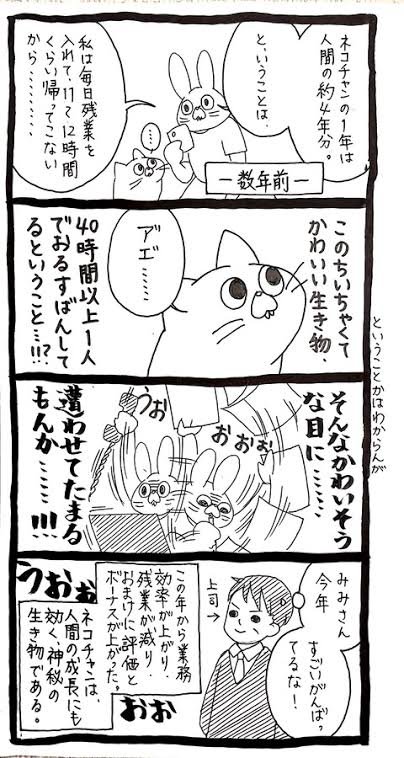 ネコチャンの1年は
人間の約4年分。
ということは、
私は毎日残業を
入れて、11〜12時間
くらい帰ってこない
から………
…
―数年前―
このちいちゃくて
かわいい生き物、
アエ……
40時間以上1人
でおるすばんして
るということ…!!?
ということかはわからんが
そんなかわいそう
な目に……
うお
おおぉ
遭わせてたまる
もんか……!!!
みみさん
今年
すごいがんばっ
てるな!
上司→
この年から業務
効率が上がり、
残業が減り、
おまけに評価と
ボーナスが上がった。
うおぉ
おお
ネコチャンは、
人間の成長にも
効く、神秘の
生き物である。